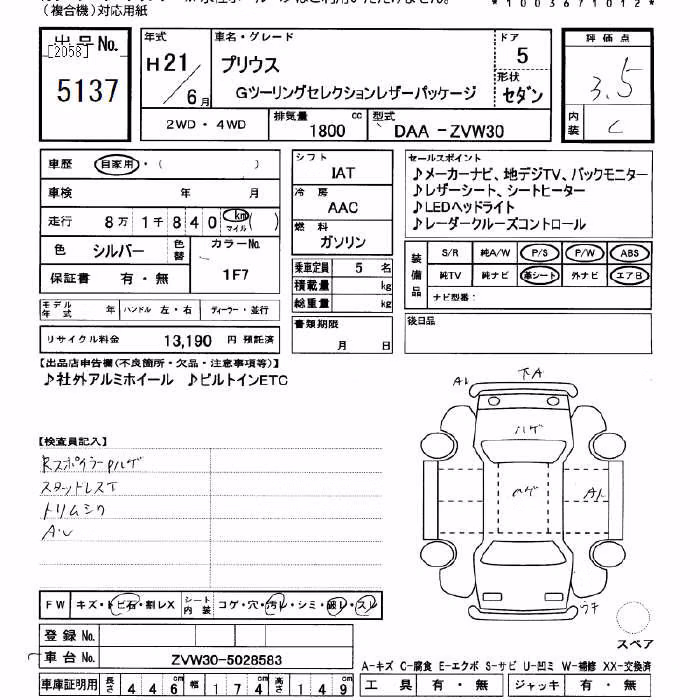 (複合機)対応用紙
*1003671012*
出品No.
[2058]
5137
年式
H21/6月
車名・グレード
プリウス
Gツーリングセレクションレザーパッケージ
ドア
5
形状
セダン
評価点
3.5
内装
C
2WD・4WD
排気量
1800 cc
型式
DAA -ZVW30
車歴 自家用・( )
車検 年 月
走行 8万1千840 km マイル ( )
色 シルバー 色替
カラーNo.
1F7
保証書 有・無
モデル年式 年 ハンドル 左・右 ディーラー・並行
リサイクル料金 13,190 円 預託済
シフト
IAT
冷房
AAC
燃料
ガソリン
乗車定員 5 名
積載量 kg
総重量 kg
書類期限
月 日
セールスポイント
♪メーカーナビ、地デジTV、バックモニター
♪レザーシート、シートヒーター
♪LEDヘッドライト
♪レーダークルーズコントロール
装備品
S/R 純A/W P/S P/W ABS
純TV 純ナビ 革シート 外ナビ エアB
ナビ型番:
後日品
【出品店申告欄(不良箇所・欠品・注意事項等)】
♪社外アルミホイール ♪ビルトインETC
【検査員記入】
Rスポイラーアハゲ
スタットレスT
トリムシワ
A・U
A1
下A
ハゲ
ハゲ
A1
スペア
FW キズ・トビ石・割レX シート内装 コゲ・穴・汚レ・シミ・破レ・スレ
登録No.
車台No. ZVW30-5028583
車庫証明用 長さ 446 cm 幅 174 cm 高さ 149 cm
A-キズ C-腐食 E-エクボ S-サビ U-凹ミ W-補修 XX-交換済
工具 有・無 ジャッキ 有・無